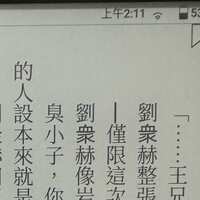 上午2:11
53
「……王兄
劉衆赫整張
—僅限這次
劉衆赫像岩
臭小子，你
的人設本來就是